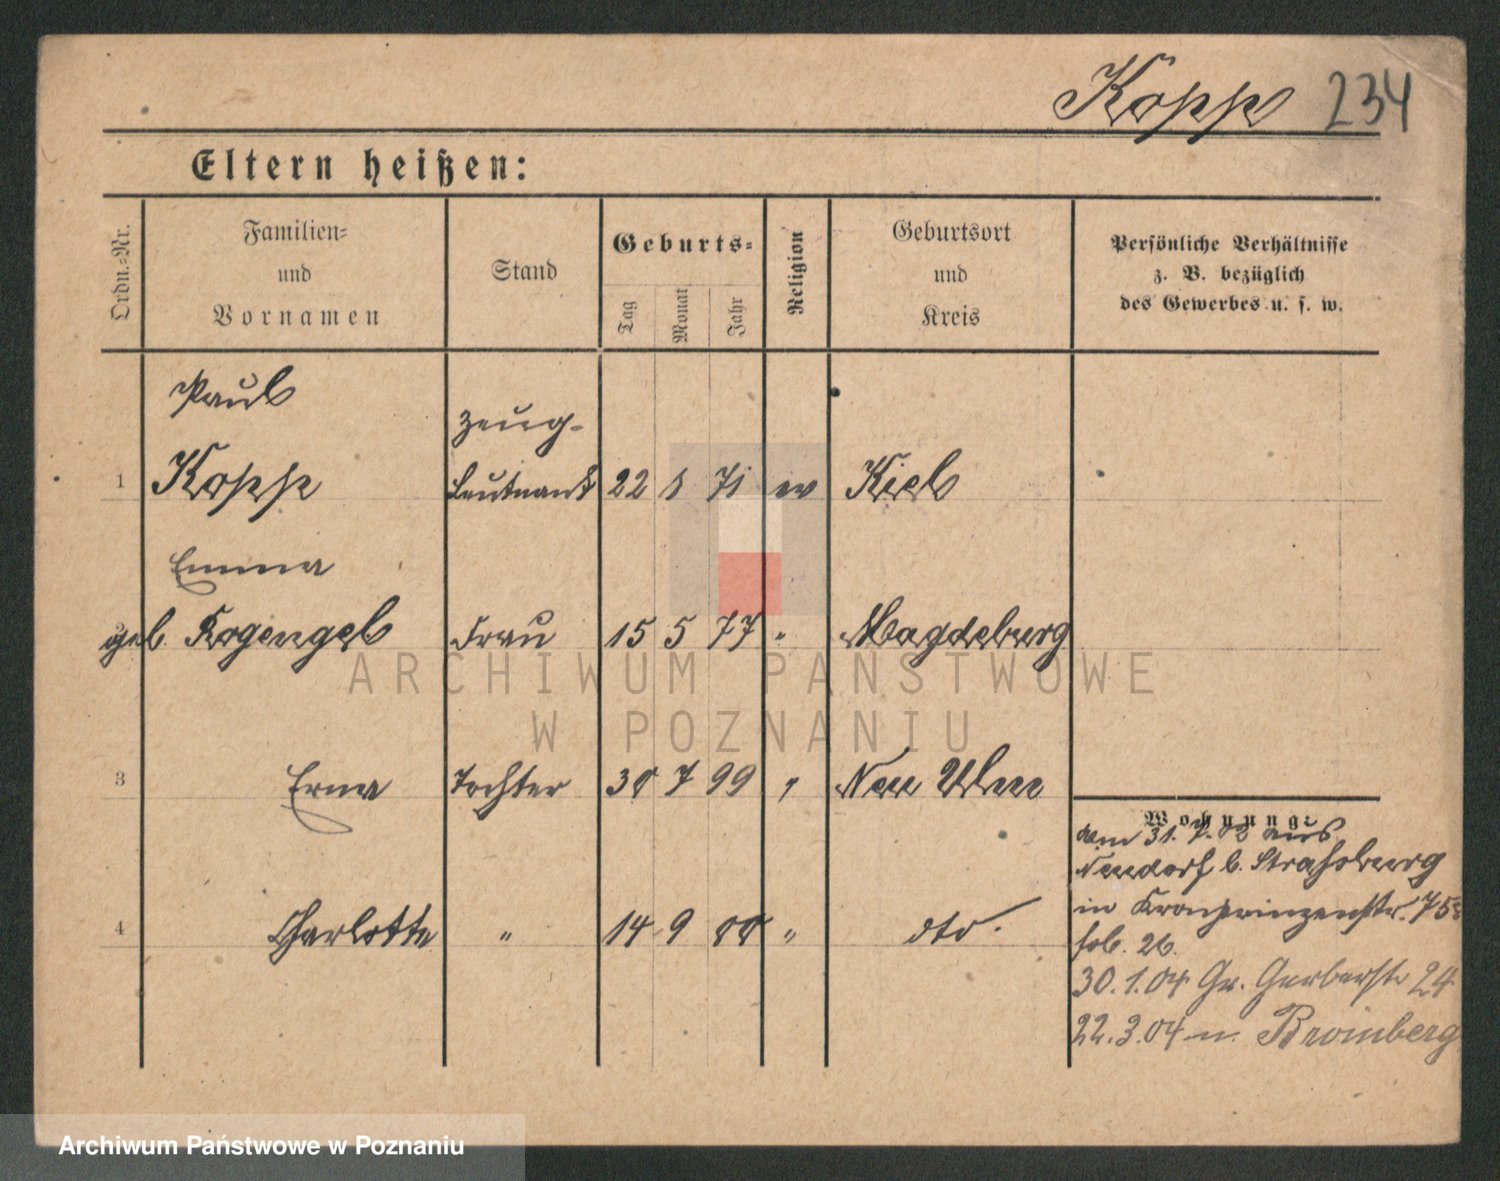 Kopp 234
Eltern heißen:
Ordn.-Nr.
Familien-
und
Vornamen
Stand
Geburts-
Tag
Monat
Jahr
Religion
Geburtsort
und
Kreis
Persönliche Verhältnisse
z. B. bezüglich
des Gewerbes u. s. w.
Paul
Zeug-
1 Kopp Leutnant 22 71 ev Kiel
Emma
geb. Frau 15 5 77 " Magdeburg
3 Erna Tochter 30 7 99 " Neu Ulm
4 Charlotte " 14 9 00 " dto.
Wohnung:
vom 31. 7. 02 aus
Neudorf b. Strassburg
in Kronprinzenstr. 75
fol. 26.
30.1.04 Gr. Gerberstr 24
22.3.04 n. Bromberg
ARCHIWUM PAŃSTWOWE
W POZNANIU
Archiwum Państwowe w Poznaniu